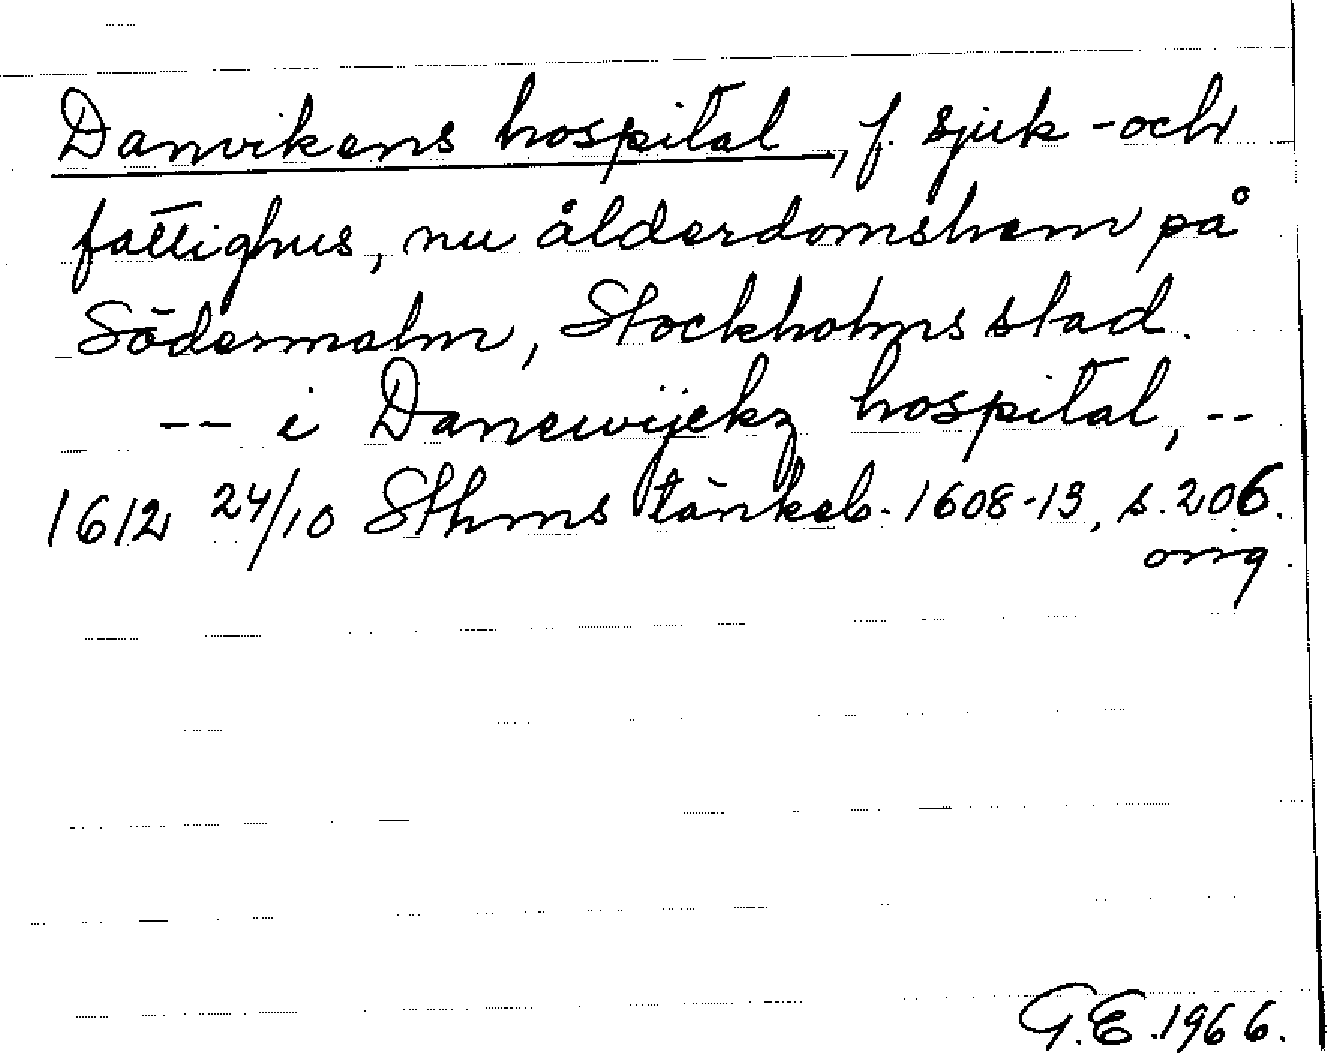 Danvikens hospital, f. sjuk- och
fattighus, nu ålderdomshem på
Södermalm, Stockholms stad.
-- i Danewijckz hospital, --
1612 24/10 Sthms tänkeb. 1608-13, s. 206.
orig.
G.E. 1966.